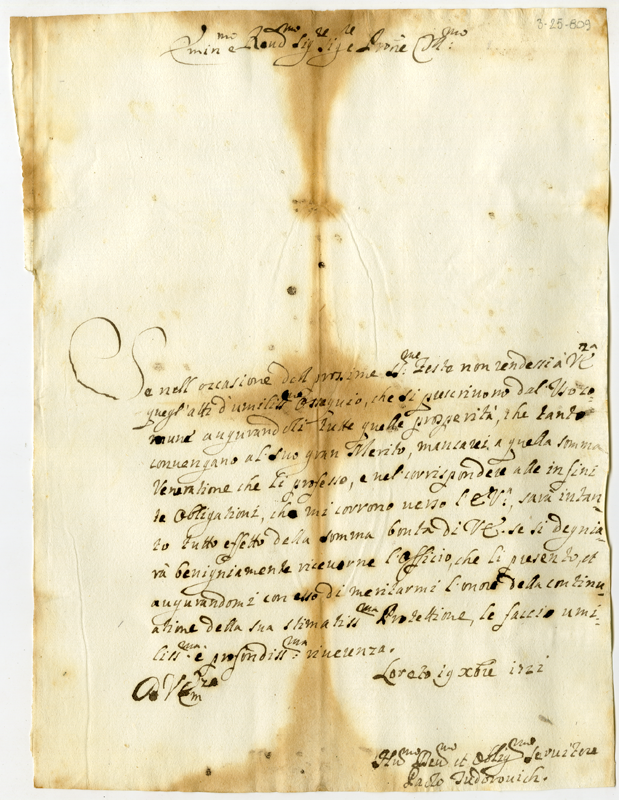 3-25-809
Emin.mo e Rev.d mo Sig.re Sig.re e Prone Col.mo:
Se nell'occasione delle prossime S.me feste non rendessi à V.E.za
quegl'atti d'umiliss.mo Ossequio, che si prescrivono dal Uso co=
mune augurandoli tutte quelle prosperità, che tanto
convengano al suo gran Merito, mancarei a quella somma
Veneratione che li professo, e nel corrispondere alle infini
te Obligationi, che mi corrono verso l'E.V., sarà intan
to tutto effetto della somma bontà di V.E. se si degnia=
rà benigniamente riceverne l'Officio, che li presento, et
augurandomi con esso di meritarmi l'onore della continu=
atione della sua stimatiss.ma Protettione, le faccio umi=
liss.ma e profondiss.ma riverenza.
Loreto 19 Xbre 1721
D V.E.za
Hu.mo Dev.mo et Oblig.mo Servitore
Paolo Tudorovich.